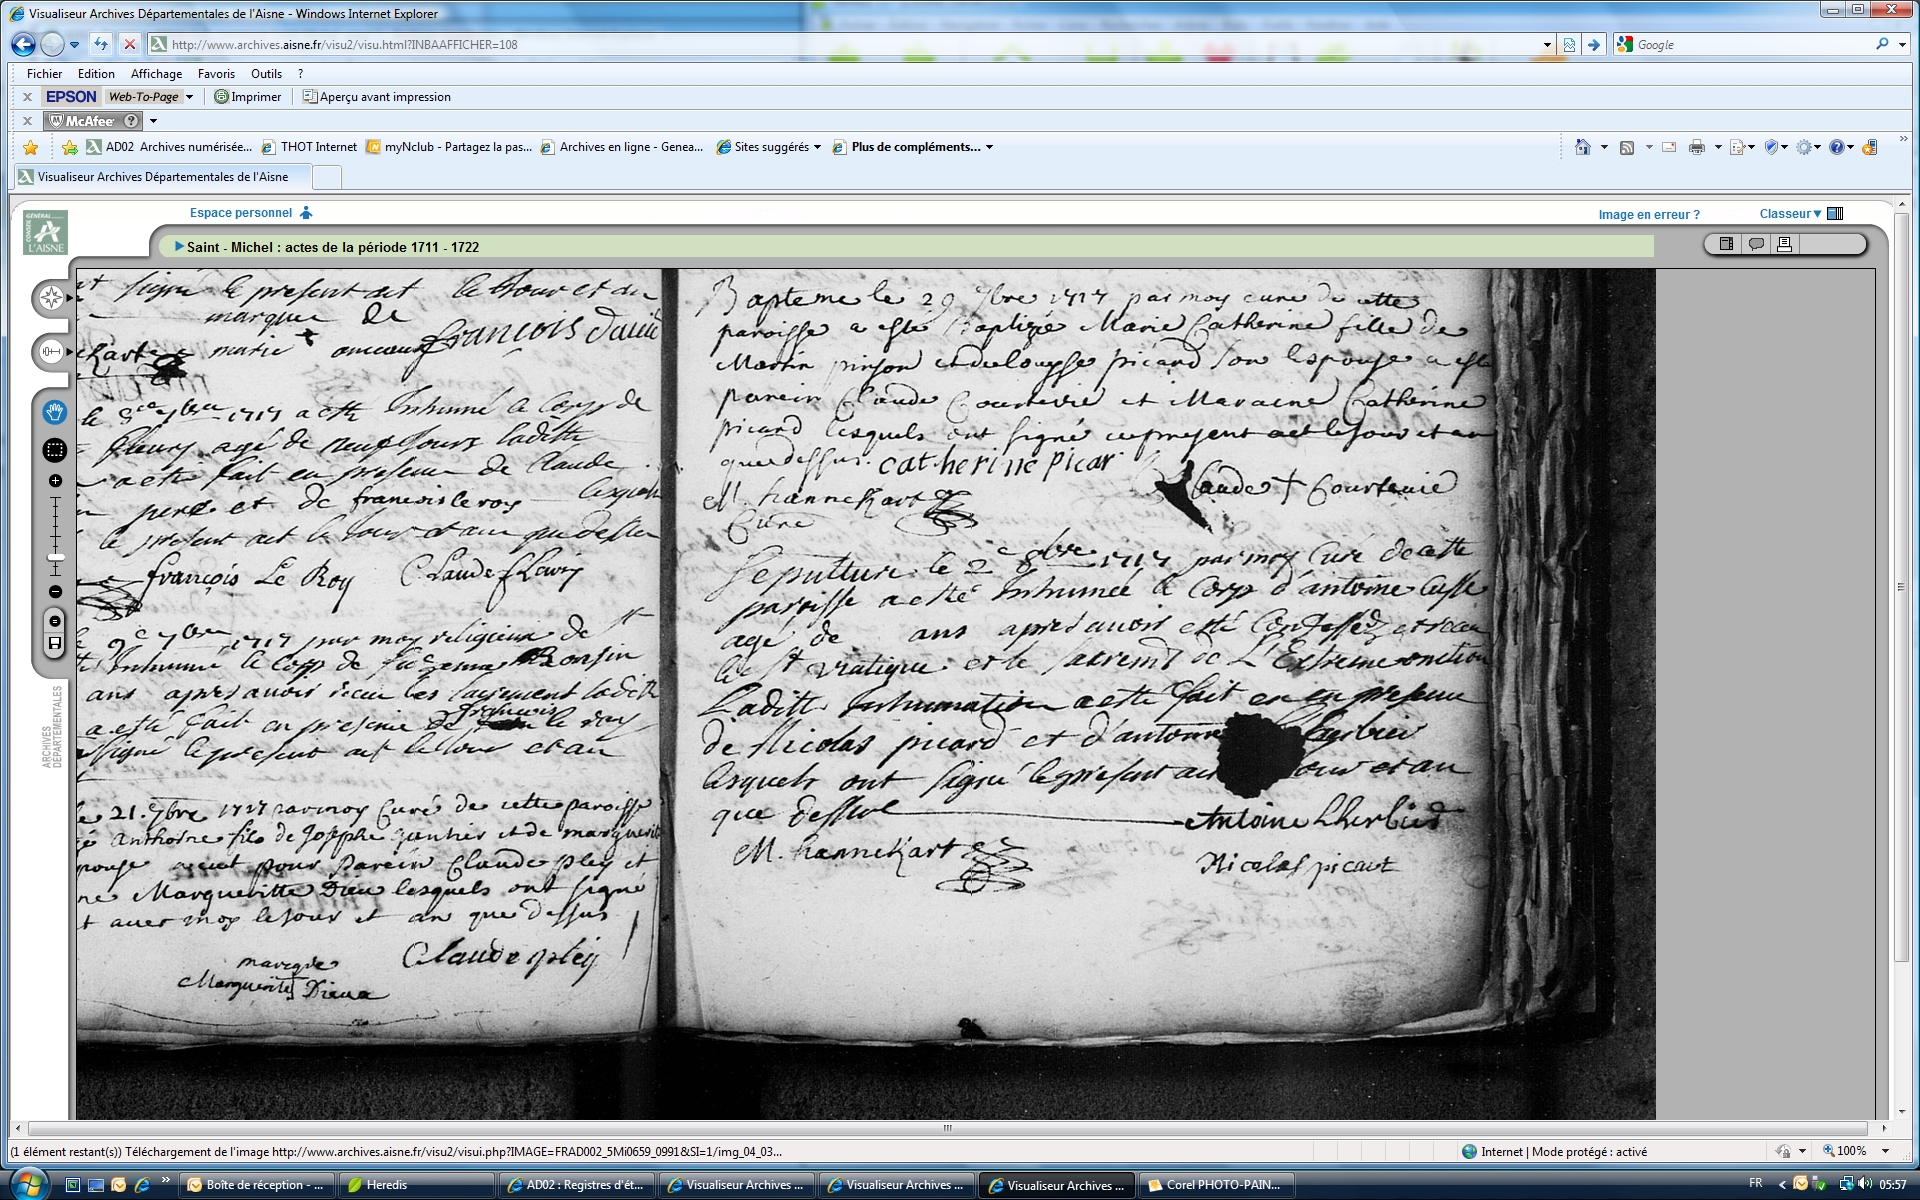 Visualiseur Archives Départementales de l'Aisne - Windows Internet Explorer
http://www.archives.aisne.fr/visu2/visu.html?INBAAFFICHER=108
Google
Fichier Edition Affichage Favoris Outils ?
x EPSON Web-To-Page Imprimer Aperçu avant impression
x McAfee ?
AD02 Archives numérisée... THOT Internet myNclub - Partagez la pas... Archives en ligne - Genea... Sites suggérés Plus de compléments...
Visualiseur Archives Départementales de l'Aisne
Espace personnel Image en erreur ? Classeur
CONSEIL GÉNÉRAL L'AISNE
Saint - Michel : actes de la période 1711 - 1722
ARCHIVES DÉPARTEMENTALES
signé le present act le Jour et an
marque de
marie françois
le 1717 a esté Inhumé le Corps de
fleury agé de neuf Jours laditte
a esté fait en presence de Claude
pere et de francois le roy lesquels
le present act le Jour et an que dessus
françois Le Roy Claude fleury
le 9e 7bre 1717 par moy religieux de St
Inhumé le Corps de Ronsin
ans apres avoir receu les laditte
a esté fait en presence de françois le roy
signé le present act le Jour et an
le 21. 7bre 1717 par moy Curé de cette paroisse
Anthoine fils de Josephe gautier et de marguerite
pouse ayant pour parein Claude pley et
ne Margueritte Dieu lesquels ont signé
t avec moy le Jour et an que dessus
Claude pley
marque
Marguerite Dieux
Bapteme le 29 7bre 1717 par moy curé de cette
paroisse a esté Baptizée Marie Catherine fille de
Martin pinson picard son Espouse a esté
parein Claude Courtevie et Maraine Catherine
picard lesquels ont signé ce present act le Jour et an
que dessus. catherine picar
M. hanneKart Claude + Courtevie
Curé
Sepulture le 2e 8bre 1717 par moy Curé de cette
paroisse a esté Inhumée le Corp d'antoine
agé de ans apres avoir esté Confessez et receu
le St viatique et le sacremt de L'Extreme onction
Laditte Inhumation a esté fait en en presence
de Nicolas picard et d'antoine
lesquels ont signé le present act Jour et an
que dessus Antoine Lherbier
M. hanneKart
Nicolas picart
(1 élément restant(s)) Téléchargement de l'image http://www.archives.aisne.fr/visu2/visui.php?IMAGE=FRAD002_5Mi0659_0991&SI=1/img_04_03...
Internet | Mode protégé : activé 100%
Boîte de réception - ... Heredis AD02 : Registres d'ét... Visualiseur Archives ... Visualiseur Archives ... Visualiseur Archives ... Corel PHOTO-PAIN... FR 05:57